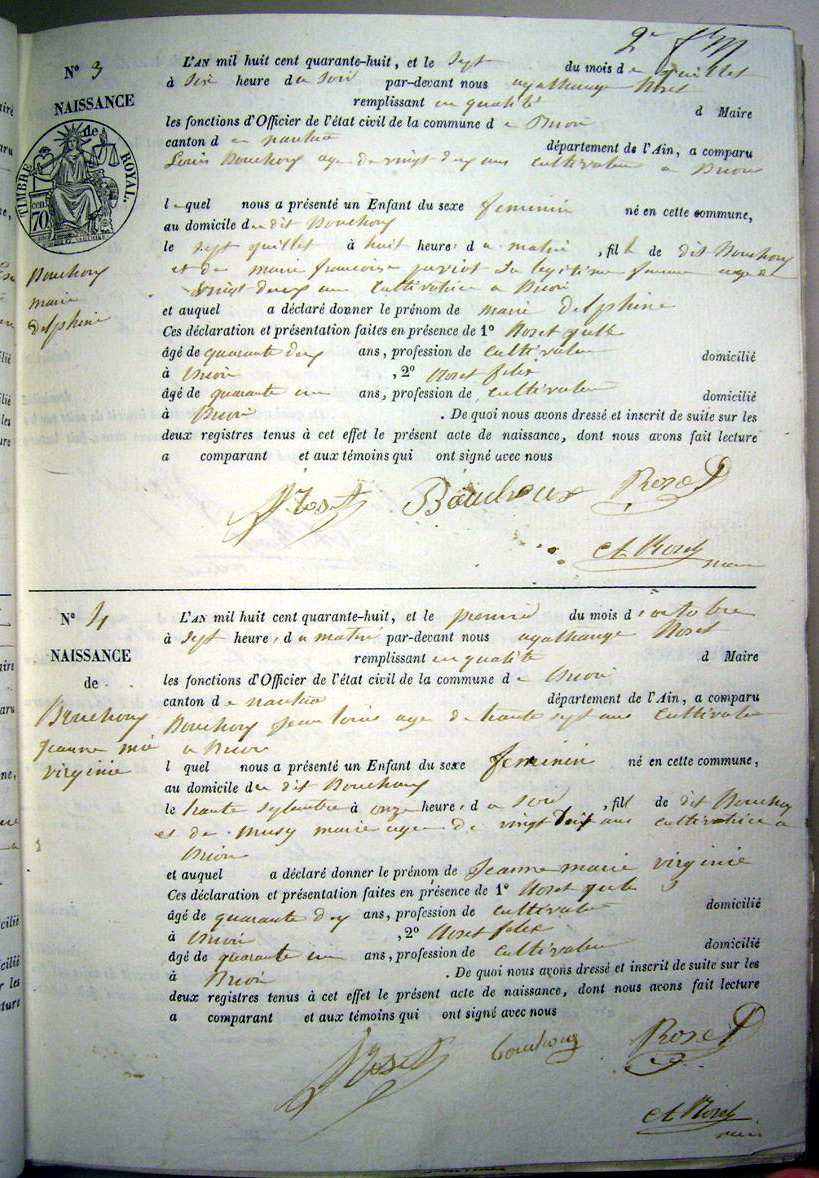 2e f
N° 3
NAISSANCE
de
TIMBRE ROYAL.
cen. 70
Bouchoux
marie
delphine
L'AN mil huit cent quarante-huit, et le sept du mois de juillet
à six heure du soir par-devant nous agathange Roset
remplissant en qualité d Maire
les fonctions d'Officier de l'état civil de la commune d e Brion
canton d e nantua département de l'Ain, a comparu
Louis Bouchoux age de vingt deux ans cultivateur a Brion
l equel nous a présenté un Enfant du sexe feminin né en cette commune,
au domicile du dit Bouchoux
le sept juillet à huit heure, d u matin, fil de dit Bouchoux
et de marie francoise la legitime femme age de
vingt deux ans cultivatrice a Brion
et auquel a déclaré donner le prénom de marie delphine
Ces déclaration et présentation faites en présence de 1° Roset
âgé de quarante deux ans, profession de cultivateur domicilié
à Brion , 2° Roset felix
âgé de quarante un ans, profession de cultivateur domicilié
à Brion . De quoi nous avons dressé et inscrit de suite sur les
deux registres tenus à cet effet le présent acte de naissance, dont nous avons fait lecture
a comparant et aux témoins qui ont signé avec nous
Roset Bouchoux Roset
Roset
maire
N° 4
NAISSANCE
de
Bouchoux
Jeanne marie
virginie
L'AN mil huit cent quarante-huit, et le premier du mois d'octobre
à sept heure, d u matin par-devant nous agathange Roset
remplissant en qualité d Maire
les fonctions d'Officier de l'état civil de la commune d e Brion
canton d e nantua département de l'Ain, a comparu
Bouchoux Jean louis age de trante sept ans cultivateur
a Brion
l quel nous a présenté un Enfant du sexe feminin né en cette commune,
au domicile du dit Bouchoux
le trante septambre à onze heure, d u soir, fil de dit Bouchoux
et de Musy marie age de vingt ans cultivatrice a
Brion
et auquel a déclaré donner le prénom de Jeanne marie virginie
Ces déclaration et présentation faites en présence de 1° Roset
âgé de quarante deux ans, profession de cultivateur domicilié
à Brion , 2° Roset felix
âgé de quarante un ans, profession de cultivateur domicilié
à Brion . De quoi nous avons dressé et inscrit de suite sur les
deux registres tenus à cet effet le présent acte de naissance, dont nous avons fait lecture
a comparant et aux témoins qui ont signé avec nous
Roset bouchoux Roset
Roset
maire